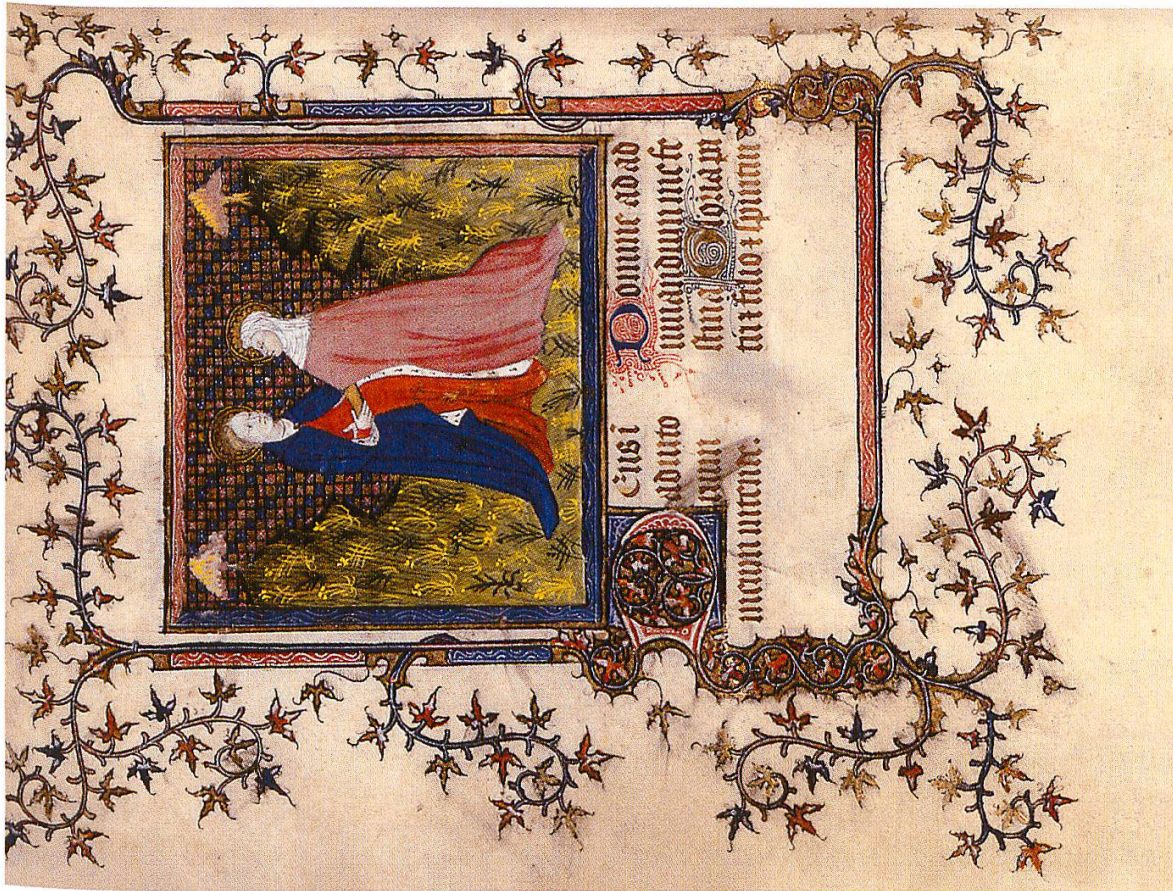 Deus ī
adiuto
rium
meum intende.
Domine ad ad
iuuandum me fe
stina Gloria pa
tri ⁊ filio ⁊ spiritu